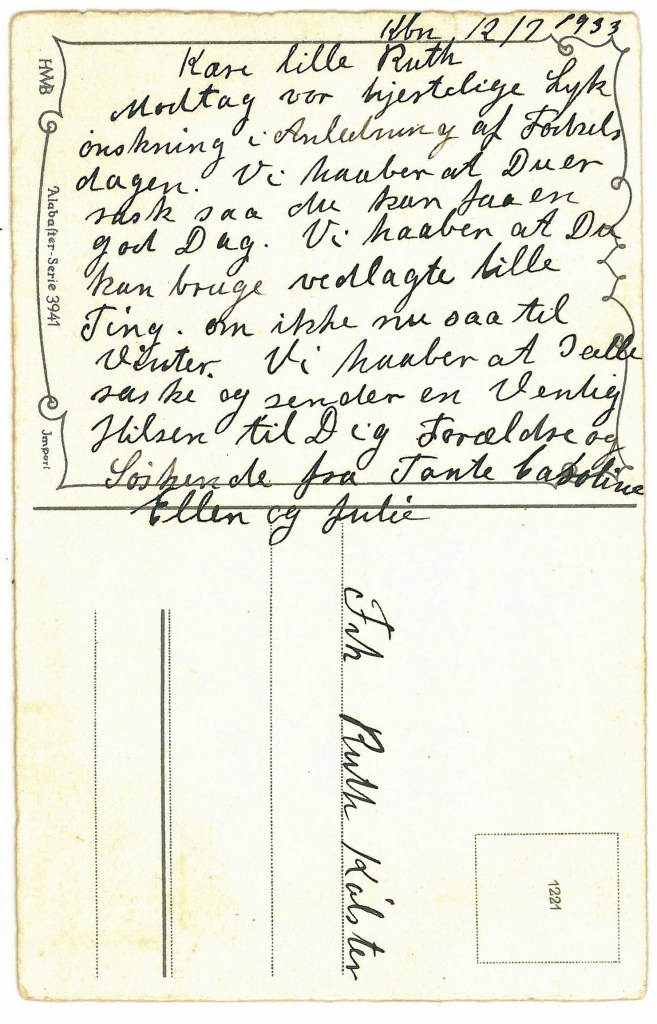 Kbn 12/7 1933
Kære lille Ruth
Modtag vor hjertelige Lyk
önskning i Anledning af Födsels
dagen. Vi haaber at Du er
rask saa du kan faa en
god Dag. Vi haaber at Du
kan bruge vedlagte lille
Ting. om ikke nu saa til
Vinter. Vi haaber at I alle
raske og sender en Venlig
Hilsen til Dig Forældre og
Söskende fra Tante Caroline
Ellen og Julie
HWB
Alabaster-Serie 3941
Import
Frk Ruth Kölster
1221